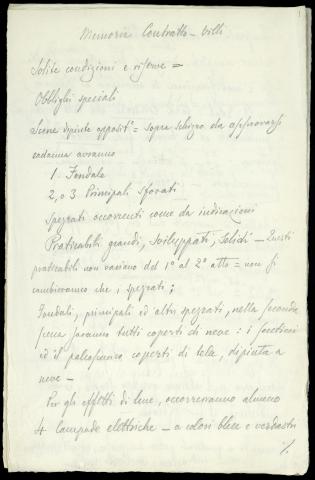 Memoria Contratto - Villi
Solite condizioni e riserve =
Obblighi speciali
Scene dipinte apposit.e = sopra schizzo da approvarsi
cadauna avranno
1. Fondale
2, o 3 Principali sforati
Spezzati occorrenti come da indicazioni
Praticabili grandi, sviluppati, solidi - Questi
praticabili non variano dal 1º al 2º atto = non si
cambieranno che i spezzati;
Fondali, principali ed altri spezzati, nella seconda
scena saranno tutti coperti di neve: i
ed il palcoscenico coperti di tela, dipinta a
neve -
Per gli effetti di luce, occorreranno almeno
4 lampade elettriche - a colori bleu e verdastri